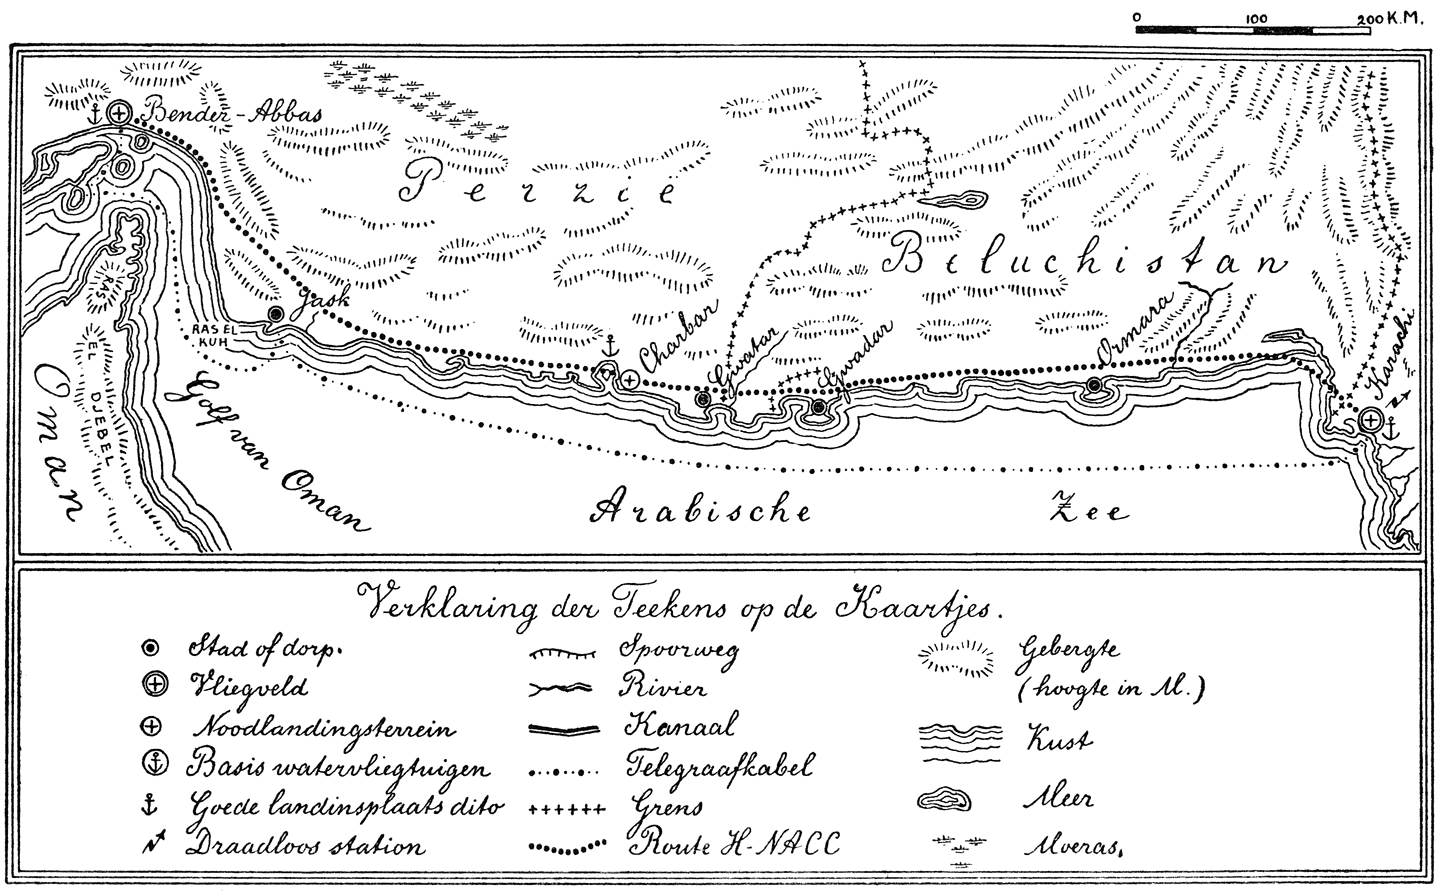 0 100 200 K.M.
Bender-Abbas
Perzië
Beluchistan
Jask
RAS EL
KUH
Charbar
Gwatar
Gwadar
Ormara
Karachi
RAS
EL
DJEBEL
Oman
Golf van Oman
Arabische Zee
Verklaring der Teekens op de Kaartjes.
Stad of dorp.
Vliegveld
Noodlandingsterrein
Basis watervliegtuigen
Goede landinsplaats dito
Draadloos station
Spoorweg
Rivier
Kanaal
Telegraafkabel
Grens
Route H-NACC
Gebergte
(hoogte in M.)
Kust
Meer
Moeras.